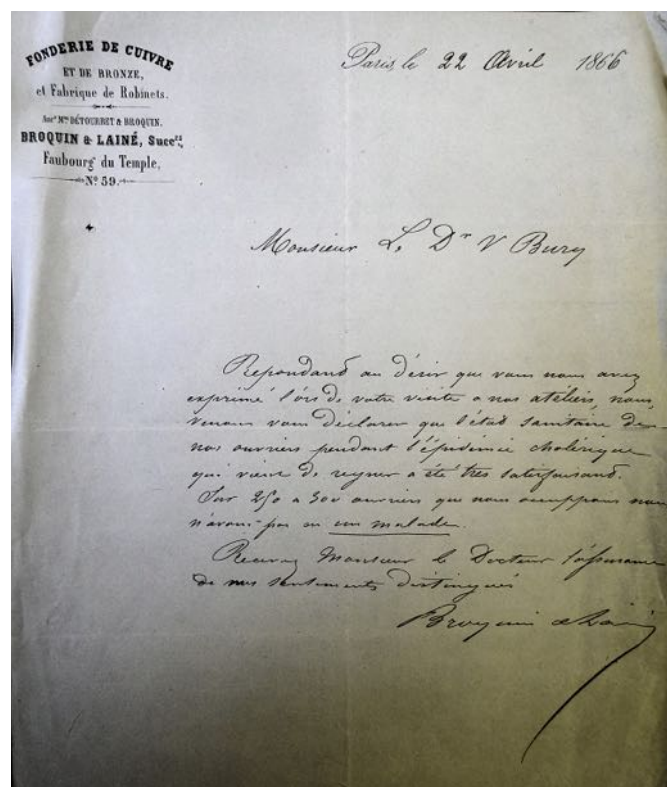 FONDERIE DE CUIVRE
ET DE BRONZE,
et Fabrique de Robinets.
Ancne Mon DÉTOURBET & BROQUIN.
BROQUIN & LAINÉ, Succrs,
Faubourg du Temple,
No 59.
Paris le 22 Avril 1866
Monsieur Le Dr V Burq
Repondant au désir que vous nous avez
exprimé lors de votre visite a nos atéliers, nous
venons vous déclarer que l'état sanitaire de
nos ouvriers pendant l'épidémie cholérique
qui vient de regner a été très satisfaisant.
Sur 250 a 300 ouvriers que nous occuppons nous
n'avons pas eu un malade.
Recevez Monsieur le Docteur l'assurance
de nos sentiments distingués
Broquin & Lainé